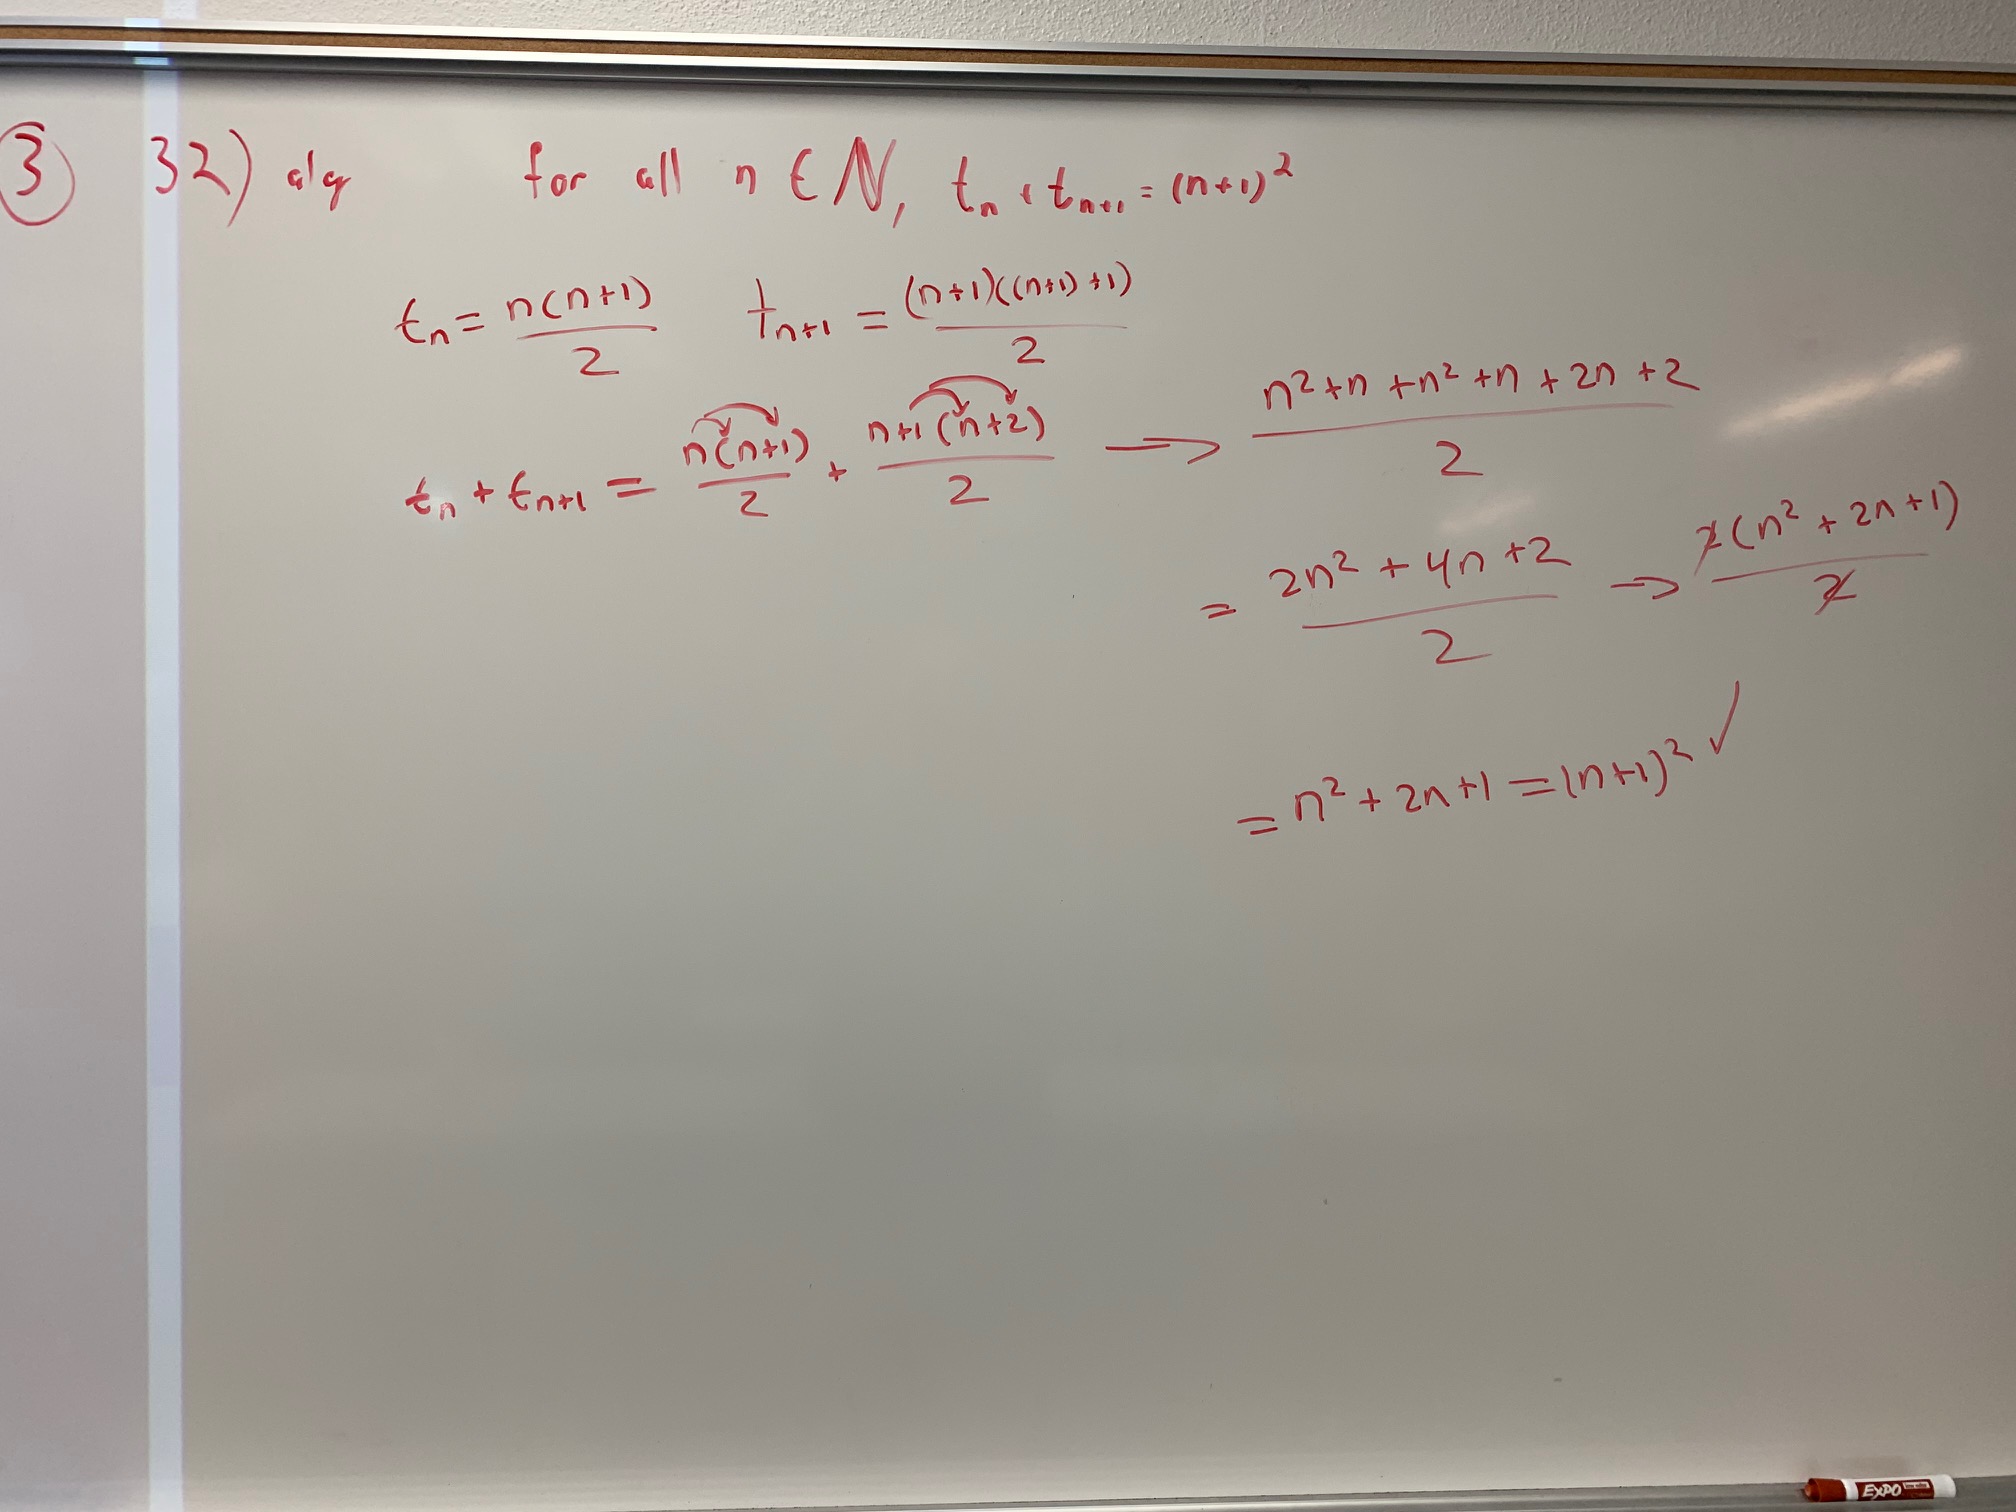 ③ 32) alg for all n ∈ ℕ, tₙ + tₙ₊₁ = (n+1)²
tₙ = n(n+1)/2 tₙ₊₁ = (n+1)((n+1)+1)/2
tₙ + tₙ₊₁ = n(n+1)/2 + n+1(n+2)/2 → n²+n+n²+n+2n+2/2
= 2n²+4n+2/2 → 2(n²+2n+1)/2
= n²+2n+1 = (n+1)² ✓
EXPO